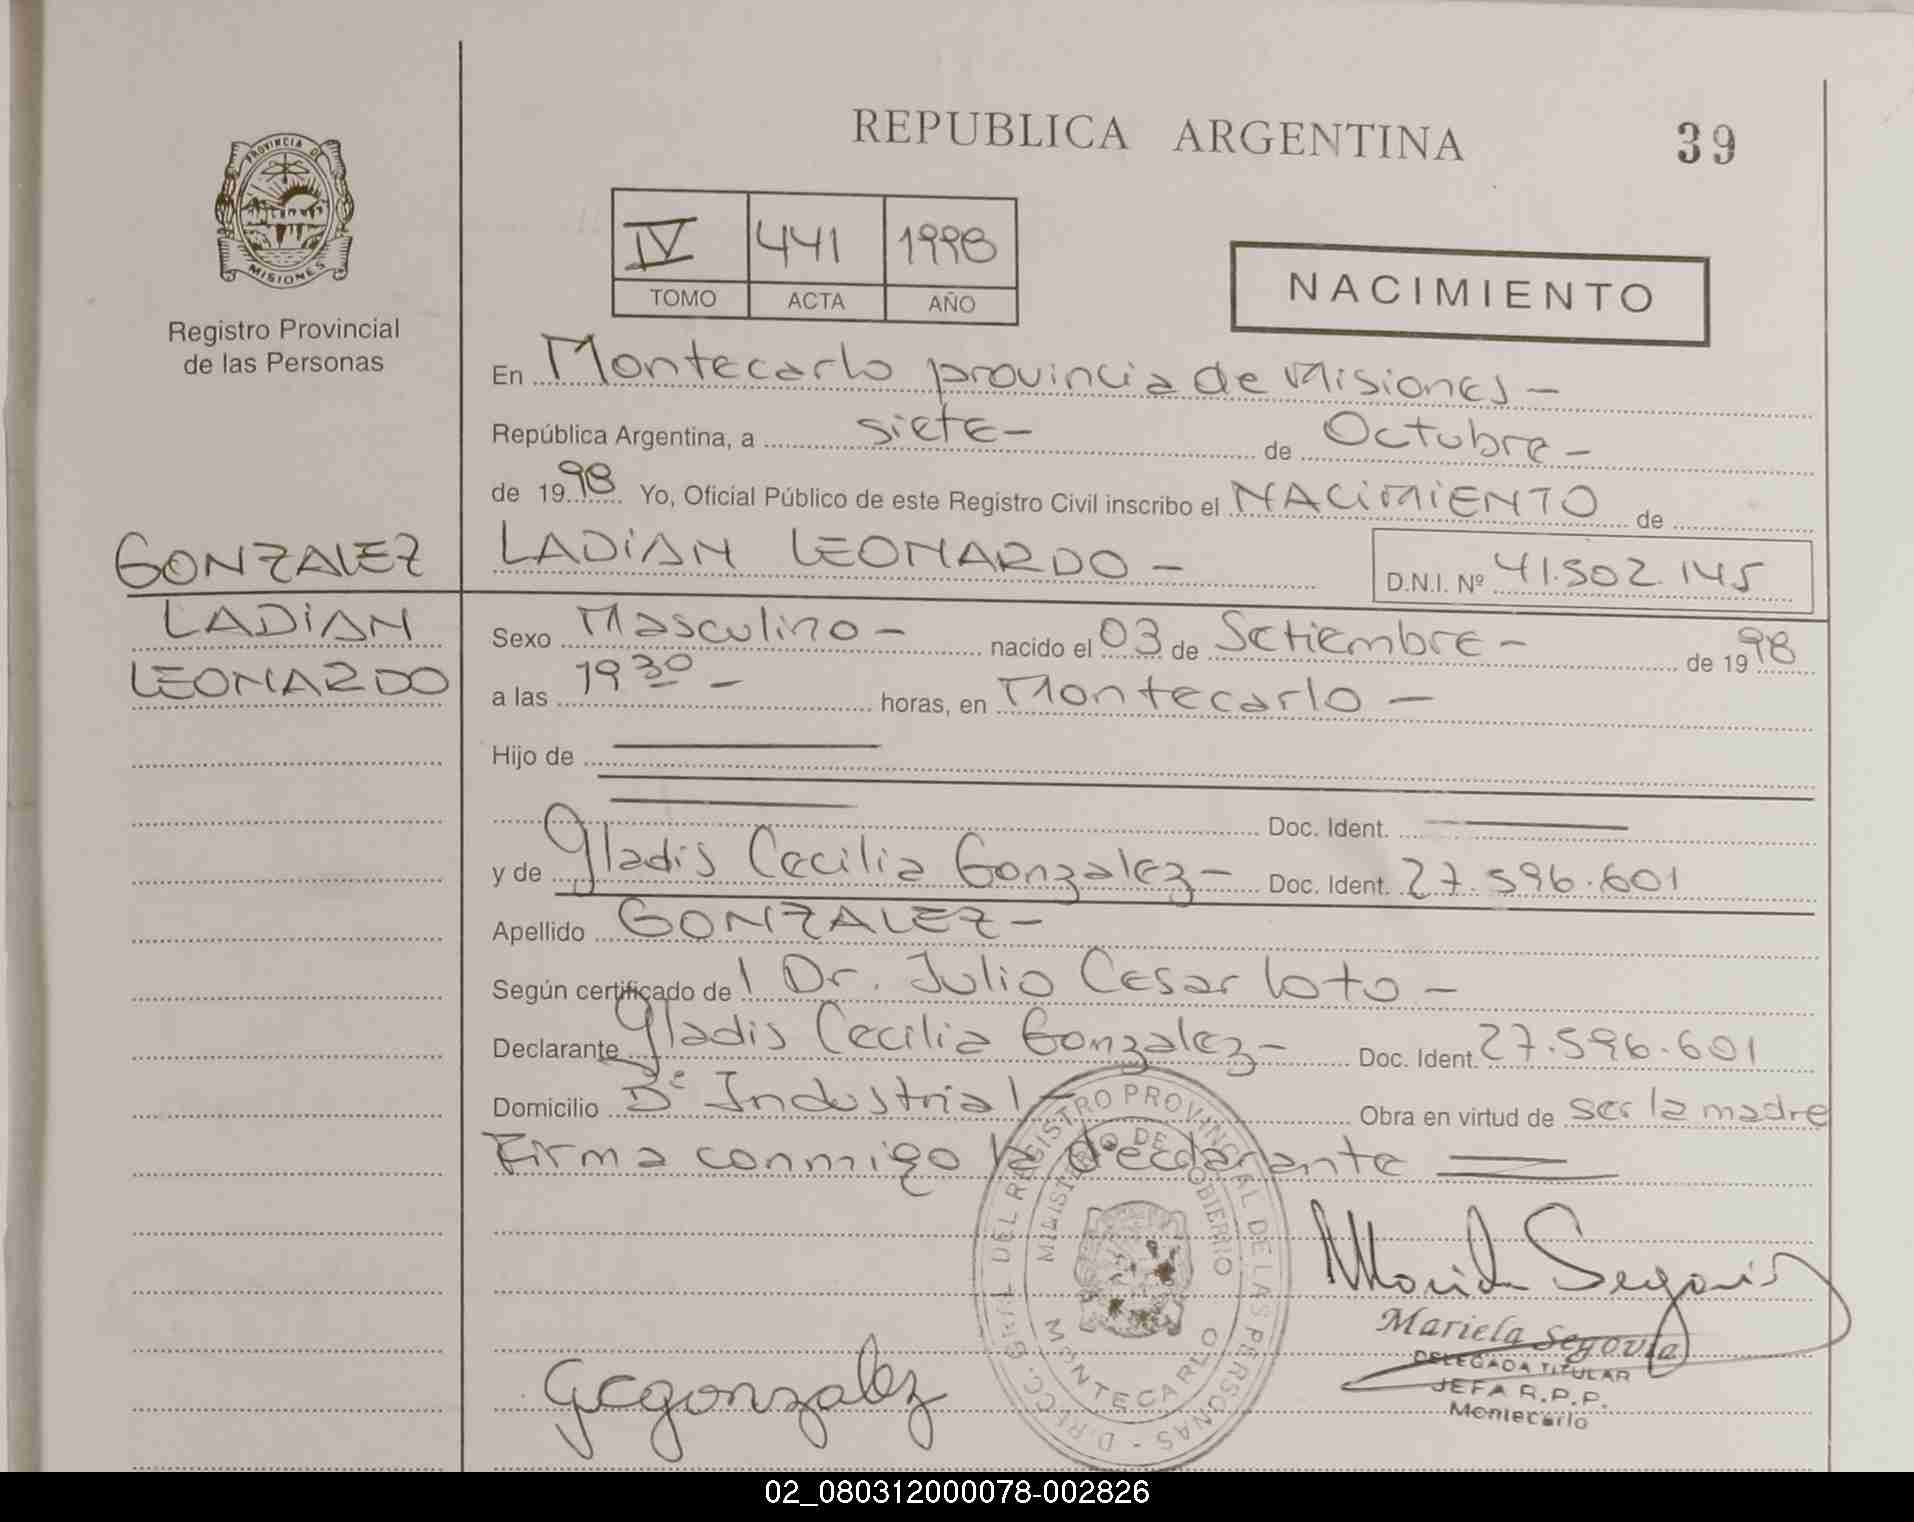 REPUBLICA ARGENTINA
39
PROVINCIA DE
MISIONES
Registro Provincial
de las Personas
IV 441 1998
TOMO ACTA AÑO
NACIMIENTO
En Montecarlo provincia de Misiones –
República Argentina, a siete – de Octubre –
de 1998 Yo, Oficial Público de este Registro Civil inscribo el NACIMIENTO de
GONZALEZ LADIAN LEONARDO – D.N.I. Nº 41.502.145
LADIAN
LEONARDO
Sexo Masculino – nacido el 03 de Setiembre – de 1998
a las 19 30 – horas, en Montecarlo –
Hijo de
Doc. Ident.
y de Gladis Cecilia Gonzalez – Doc. Ident. 27.596.601
Apellido GONZALEZ –
Según certificado de l Dr. Julio Cesar Loto –
Declarante Gladis Cecilia Gonzalez – Doc. Ident. 27.596.601
Domicilio Bº Industrial – Obra en virtud de ser la madre
Firma conmigo la declarante
DIRECC. GRAL. DEL REGISTRO PROVINCIAL DE LAS PERSONAS -
MINISTERIO DE GOBIERNO
MONTECARLO
Mariela Segovia
Mariela Segovia
DELEGADA TITULAR
JEFA R.P.P.
Montecarlo
GCGonzalez
02_080312000078-002826